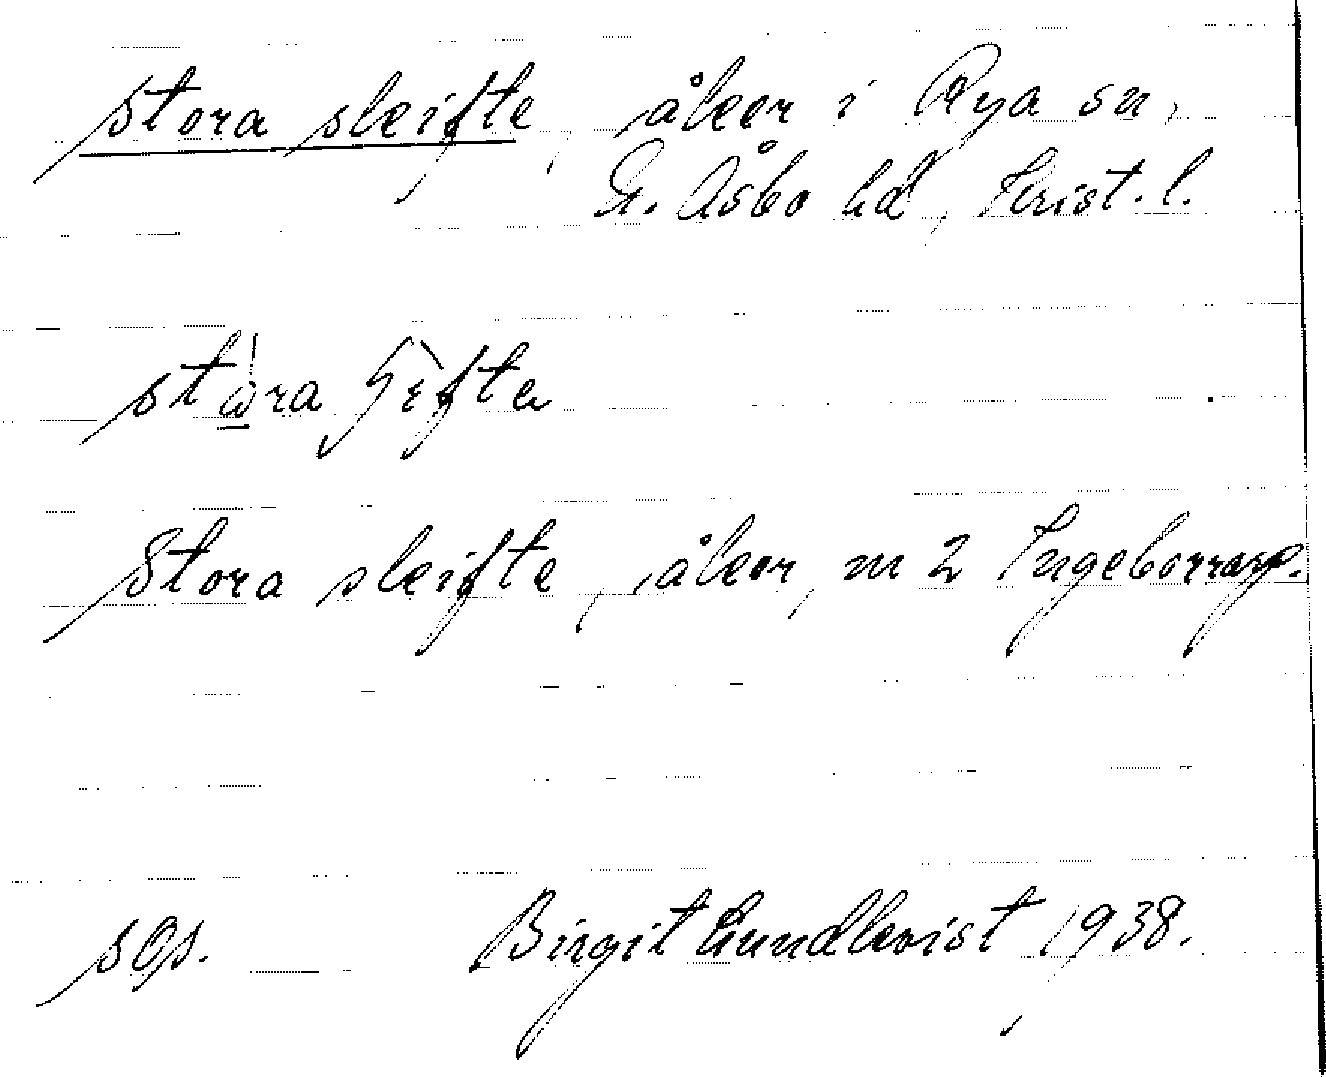 Stora skifte, åker i Rya sn,
N. Åsbo hd, Krist. l.
stora
Stora skifte, åker, m 2 Ingeborrarp.
sgs. Birgit Lundkvist 1938.